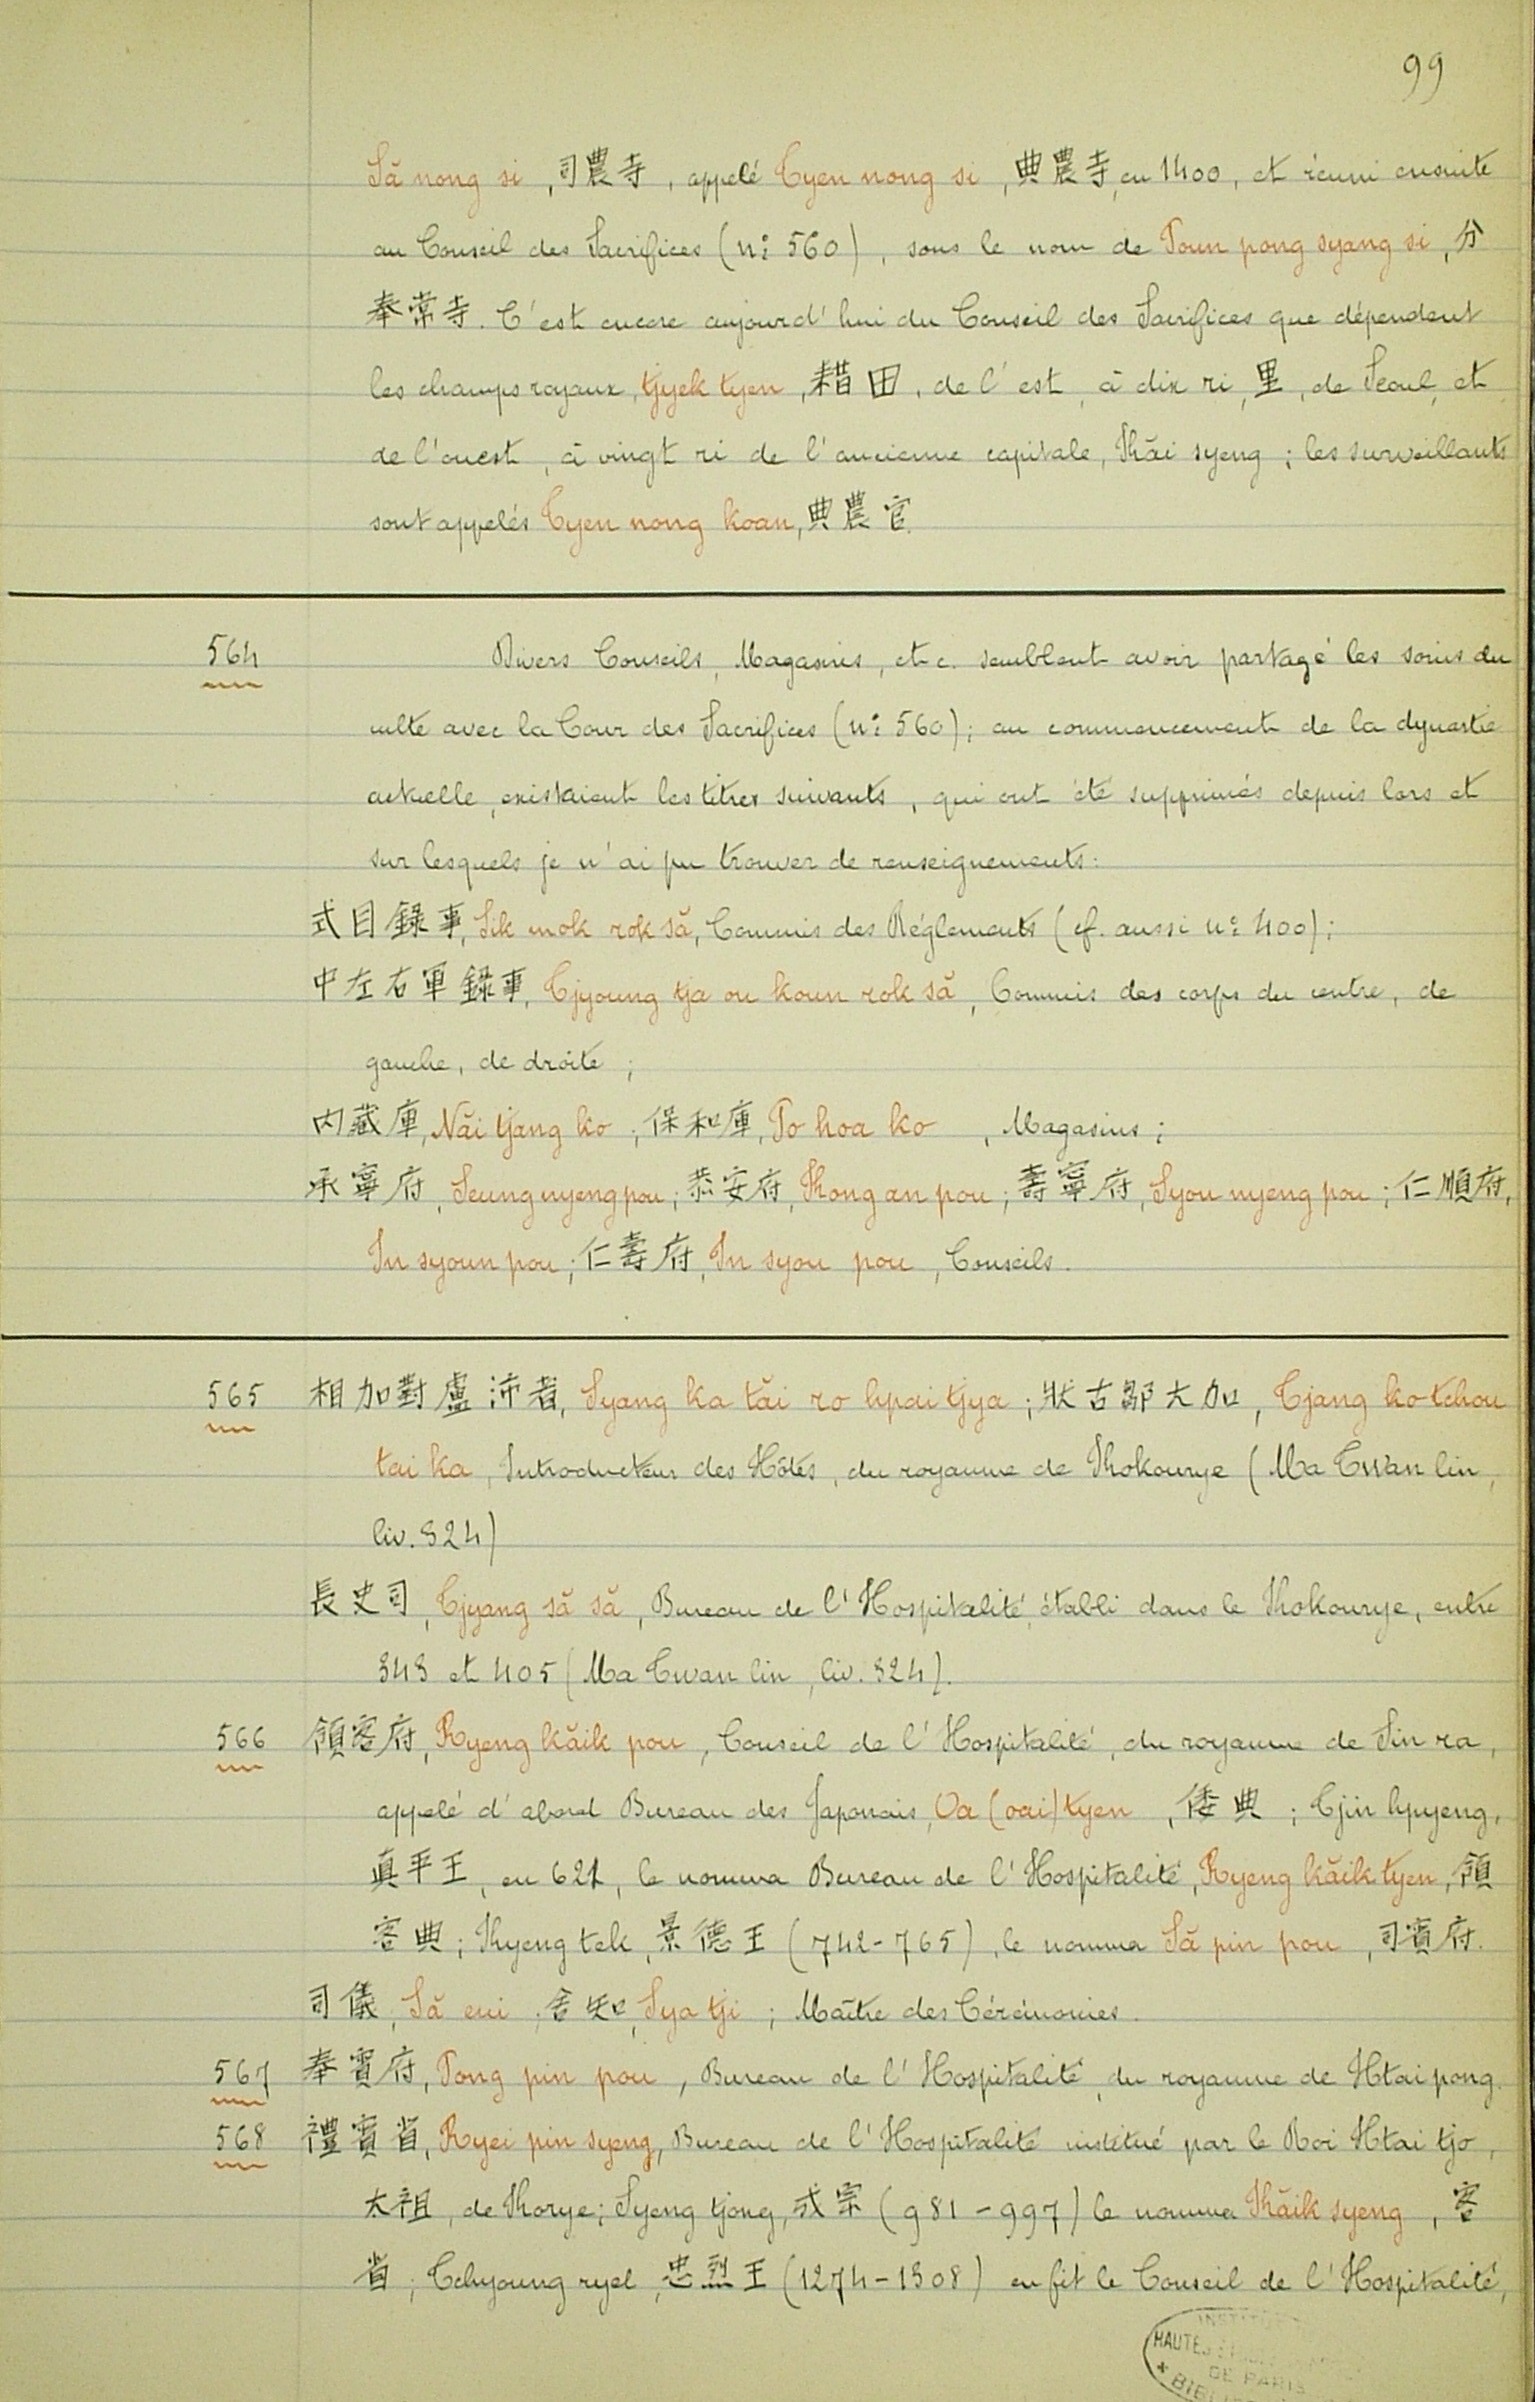 99
Să nong si, 司農寺, appelé Tyen nong si, 典農寺, en 1400, et réuni ensuite
au Conseil des Sacrifices (n: 560), sous le nom de Poun pong syang si, 分
奉常寺. C'est encore aujourd'hui du Conseil des Sacrifices que dépendent
les champs royaux, tjyek tyen, 耤田, de l'est, à dix ri, 里, de Seoul, et
de l'ouest, à vingt ri de l'ancienne capitale, Kăi syeng; les surveillants
sont appelés Tyen nong koan, 典農官.
564 Divers Conseils, Magasins, etc. semblent avoir partagé les soins du
culte avec la Cour des Sacrifices (n: 560); au commencement de la dynastie
actuelle, existaient les titres suivants, qui ont été supprimés depuis lors et
sur lesquels je n'ai pu trouver de renseignements:
式目錄事, Sik mok rok să, Commis des Réglements (cf. aussi n: 400);
中左右軍錄事, Tjyoung tja ou koun rok să, Commis des corps du centre, de
gauche, de droite;
内藏庫, Năi tjang ko; 保和庫, Po hoa ko, Magasins;
承寧府, Seung nyeng pou; 恭安府, Kong an pou; 壽寧府, Syou nyeng pou; 仁順府,
In syoun pou; 仁壽府, In syou pou, Conseils.
565 相加對盧沛者, Syang ka tăi ro hpai tjya; 狀古鄒大加, Tjang ko tchou
tai ka, Introducteur des Hôtes, du royaume de Kokourye (Ma Twan lin,
liv. 324)
長史司, Tjyang să să, Bureau de l'Hospitalité, établi dans le Kokourye, entre
343 et 405 (Ma Twan lin, liv. 324).
566 領客府, Ryeng kăik pou, Conseil de l'Hospitalité, du royaume de Sin ra,
appelé d'abord Bureau des Japonais, Oa (oai) tyen, 倭典; Tjin hpyeng,
眞平王, en 621, le nomma Bureau de l'Hospitalité, Ryeng kăik tyen, 領
客典; Kyeng tek, 景德王 (742-765), le nomma Să pin pou, 司賓府.
司儀, Să eui; 舍知, Sya tji; Maître des Cérémonies.
567 奉賓府, Pong pin pou, Bureau de l'Hospitalité, du royaume de Htai pong.
568 禮賓省, Ryei pin syeng, Bureau de l'Hospitalité institué par le Roi Htai tjo,
太祖, de Korye; Syeng tjong, 成宗 (981-997) le nomma Kăik syeng, 客
省; Tchyoung ryel, 忠烈王 (1274-1308) en fit le Conseil de l'Hospitalité,
HAUTES
DE PARIS